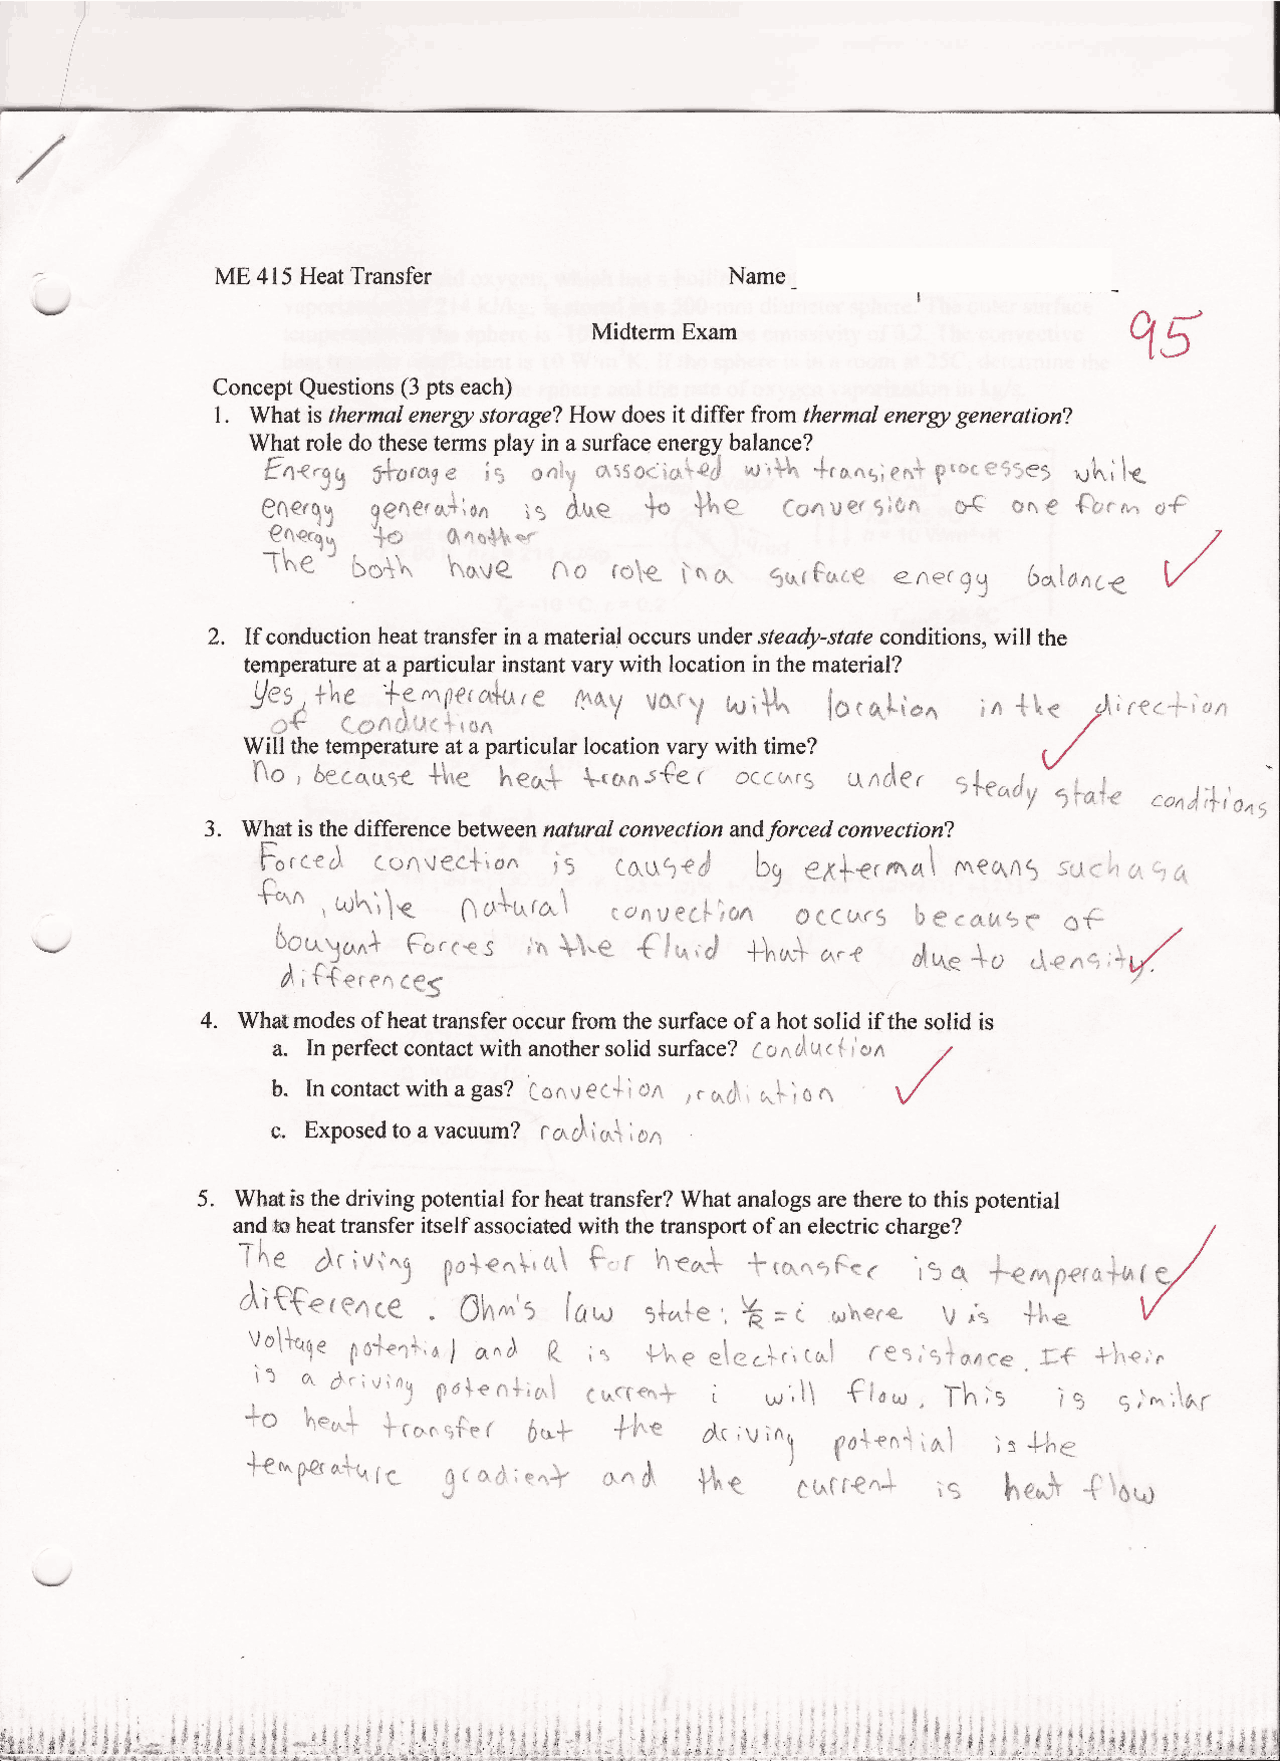 ME 415 Heat Transfer Name_
Midterm Exam
95
Concept Questions (3 pts each)
1. What is thermal energy storage? How does it differ from thermal energy generation?
What role do these terms play in a surface energy balance?
Energy storage is only associated with transient processes while
energy generation is due to the conversion of one form of
energy to another
The both have no role in a surface energy balance
2. If conduction heat transfer in a material occurs under steady-state conditions, will the
temperature at a particular instant vary with location in the material?
Yes, the temperature may vary with location in the direction
of conduction
Will the temperature at a particular location vary with time?
No, because the heat transfer occurs under steady state conditions
3. What is the difference between natural convection and forced convection?
Forced convection is caused by extermal means such as a
fan, while natural convection occurs because of
bouyant forces in the fluid that are due to density
differences
4. What modes of heat transfer occur from the surface of a hot solid if the solid is
a. In perfect contact with another solid surface? conduction
b. In contact with a gas? convection, radiation
c. Exposed to a vacuum? radiation
5. What is the driving potential for heat transfer? What analogs are there to this potential
and to heat transfer itself associated with the transport of an electric charge?
The driving potential for heat transfer is a temperature
difference. Ohm's law state: V/R = i where V is the
voltage potential and R is the electrical resistance. If their
is a driving potential current i will flow. This is similar
to heat transfer but the driving potential is the
temperature gradient and the current is heat flow